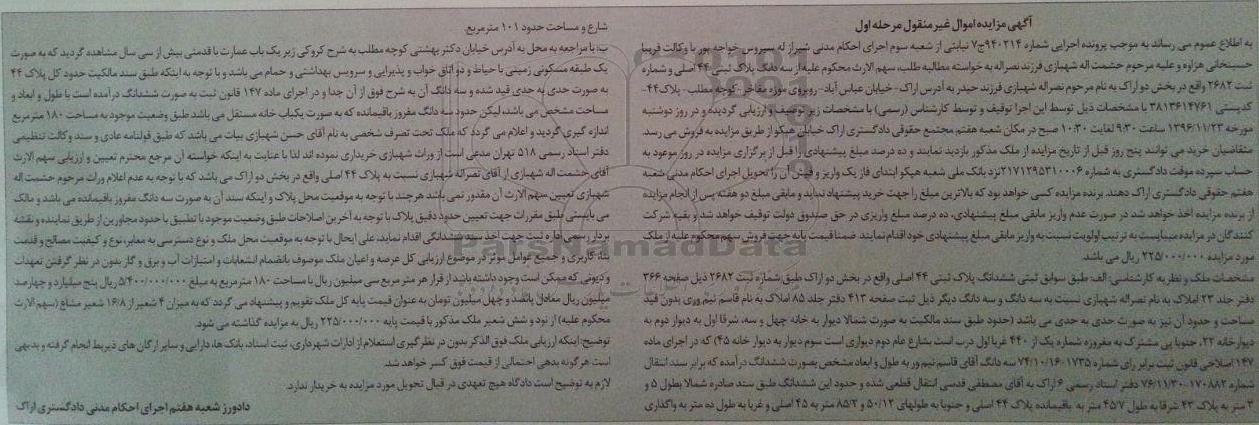 آگهی مزایده اموال غیر منقول مرحله اول
به اطلاع عموم می رساند به موجب پرونده اجرایی شماره ۹۴۰۲۱۴ج۷ نیابتی از شعبه سوم اجرای احکام مدنی شیراز له سیروس خواجه پور با وکالت فریبا
حسینخانی هزاوه و علیه مرحوم حشمت اله شهبازی فرزند نصراله به خواسته مطالبه طلب، سهم الارث محکوم علیه از سه دانگ پلاک ثبتی ۴۴ اصلی و شماره
ثبت ۲۶۸۲ واقع در بخش دو اراک به نام مرحوم نصراله شهبازی فرزند حیدر به آدرس اراک - خیابان عباس آباد- روبروی موزه مفاخر- کوچه مطلب - پلاک ۴۴-
کدپستی ۳۸۱۳۶۱۴۷۶۱ با مشخصات ذیل توسط این اجرا توقیف و توسط کارشناس (رسمی) با مشخصات زیر توصیف و ارزیابی گردیده و در روز دوشنبه
مورخه ۱۳۹۶/۱۱/۲۳ ساعت ۹:۳۰ لغایت ۱۰:۳۰ صبح در مکان شعبه هفتم مجتمع حقوقی دادگستری اراک خیابان هپکو از طریق مزایده به فروش می رسد.
متقاضیان خرید می توانند پنج روز قبل از تاریخ مزایده از ملک مذکور بازدید نمایند و ده درصد مبلغ پیشنهادی را قبل از برگزاری مزایده در روز موعود به
حساب سپرده موقت دادگستری به شماره ۲۱۷۱۲۹۵۳۱۰۰۰۶ نزد بانک ملی شعبه هپکو ابتدای فاز یک واریز و فیش آن را تحویل اجرای احکام مدنی شعبه
هفتم حقوقی دادگستری اراک دهند. برنده مزایده کسی خواهد بود که بالاترین مبلغ را جهت خرید پیشنهاد نماید و مابقی مبلغ دو هفته پس از انجام مزایده
از برنده مزایده اخذ خواهد شد در صورت عدم واریز مابقی مبلغ پیشنهادی، ده درصد مبلغ واریزی در حق صندوق دولت توقیف خواهد شد و بقیه شرکت
کنندگان در مزایده میبایست به ترتیب اولویت نسبت به واریز مابقی مبلغ پیشنهادی خود اقدام نمایند. ضمنا قیمت پایه جهت فروش سهم محکوم علیه از ملک
مورد مزایده ۲۲۵/۰۰۰/۰۰۰ ریال می باشد.
مشخصات ملک و نظریه کارشناسی: الف- طبق سوابق ثبتی ششدانگ پلاک ثبتی ۴۴ اصلی واقع در بخش دو اراک طبق شماره ثبت ۲۶۸۲ ذیل صفحه ۳۶۶
دفتر جلد ۲۳ املاک به نام نصراله شهبازی نسبت به سه دانگ و سه دانگ دیگر ذیل ثبت صفحه ۴۱۳ دفتر جلد ۸۵ املاک به نام قاسم نیم وری بدون قید
مساحت و حدود آن نیز به صورت حدی به حدی می باشد (حدود طبق سند مالکیت به صورت شمالا دیوار به خانه چهل و سه، شرقا اول به دیوار دوم به
دیوار خانه ۲۲، جنوبا پی مشترک به مفروزه شماره یک از ۴۴۰ غربا اول درب است بشارع عام دوم دیواری است سوم دیوار به دیوار خانه ۴۵) که در اجرای ماده
۱۴۷ اصلاحی قانون ثبت برابر رای شماره ۱۷۳۵-۷۴/۱۰/۱۶ سه دانگ آقای قاسم نیم ور به طول و ابعاد مشخص بصورت ششدانگ در آمده که برابر سند انتقال
شماره ۱۷۰۸۸۲-۷۶/۱۱/۳۰ دفتر اسناد رسمی ۶ اراک به آقای مصطفی قدسی انتقال قطعی شده و حدود این ششدانگ طبق سند صادره شمالا بطول ۵ و
۳ متر به پلاک ۴۳ شرقا به طول ۴۵/۷ متر به باقیمانده پلاک ۴۴ اصلی و جنوبا به طولهای ۵۰/۱۲ و ۸۵/۲ متر به ۴۵ اصلی و غربا به طول ده متر به واگذاری
شارع و مساحت حدود ۱۰۱ مترمربع.
ب: با مراجعه به محل به آدرس خیابان دکتر بهشتی کوچه مطلب به شرح کروکی زیر یک باب عمارت با قدمتی بیش از سی سال مشاهده گردید که به صورت
یک طبقه مسکونی زمینی با حیاط و دو اتاق خواب و پذیرایی و سرویس بهداشتی و حمام می باشد و با توجه به اینکه طبق سند مالکیت حدود کل پلاک ۴۴
به صورت حدی به حدی قید شده و سه دانگ آن به شرح فوق از آن جدا و در اجرای ماده ۱۴۷ قانون ثبت به صورت ششدانگ در آمده است با طول و ابعاد و
مساحت مشخص می باشد، لیکن حدود سه دانگ مفروز باقیمانده که به صورت یکباب خانه مستقل می باشد طبق وضعیت موجود به مساحت ۱۸۰ متر مربع
اندازه گیری گردید و اعلام می گردد که ملک تحت تصرف شخصی به نام آقای حسن شهبازی بیات می باشد که طبق قولنامه عادی و سند وکالت تنظیمی
دفتر اسناد رسمی ۵۱۸ تهران مدعی است از وراث شهبازی خریداری نموده اند لذا با عنایت به اینکه خواسته آن مرجع محترم تعیین و ارزیابی سهم الارث
آقای حشمت اله شهبازی از آقای نصراله شهبازی نسبت به پلاک ۴۴ اصلی واقع در بخش دو اراک می باشد که با توجه به عدم اعلام وراث مرحوم حشمت اله
شهبازی تعیین سهم الارث آن مقدور نمی باشد هرچند با توجه به موقعیت محل پلاک و اینکه سند آن به صورت سه دانگ مفروز باقیمانده می باشد و مالک
می بایستی طبق مقررات جهت تعیین حدود دقیق پلاک با توجه به آخرین اصلاحات طبق وضعیت موجود با تطبیق با حدود مجاورین از طریق نماینده و نقشه
بردار رسمی اداره ثبت جهت اخذ سند ششدانگی اقدام نماید، علی ایحال با توجه به موقعیت محل ملک و نوع دسترسی به معابر، نوع و کیفیت مصالح و قدمت
بنا، کاربری و جمیع عوامل موثر در موضوع ارزیابی کل عرصه و اعیان ملک موصوف بانضمام انشعابات و امتیازات آب و برق و گاز بدون در نظر گرفتن تعهدات
و دیونی که ممکن است وجود داشته باشد از قرار هر متر مربع سی میلیون ریال با مساحت ۱۸۰ مترمربع به مبلغ ۵/۴۰۰/۰۰۰/۰۰۰ ریال پنج میلیارد و چهارصد
میلیون ریال معادل پانصد و چهل میلیون تومان به عنوان قیمت پایه کل ملک تقویم و پیشنهاد می گردد که به میزان ۴ شعیر از ۱۶/۸ شعیر مشاع (سهم الارث
محکوم علیه) از نود و شش شعیر ملک مذکور با قیمت پایه ۲۲۵/۰۰۰/۰۰۰ ریال به مزایده گذاشته می شود.
توضیح: اینکه ارزیابی ملک فوق الذکر بدون در نظر گیری استعلام از ادارات شهرداری، ثبت اسناد، بانک ها، دارایی و سایر ارگان های ذیربط انجام گرفته و بدیهی
است هر گونه بدهی احتمالی از قیمت فوق کسر خواهد شد.
لازم به توضیح است دادگاه هیچ تعهدی در قبال تحویل مورد مزایده به خریدار ندارد.
دادورز شعبه هفتم اجرای احکام مدنی دادگستری اراک
ParsNamadData